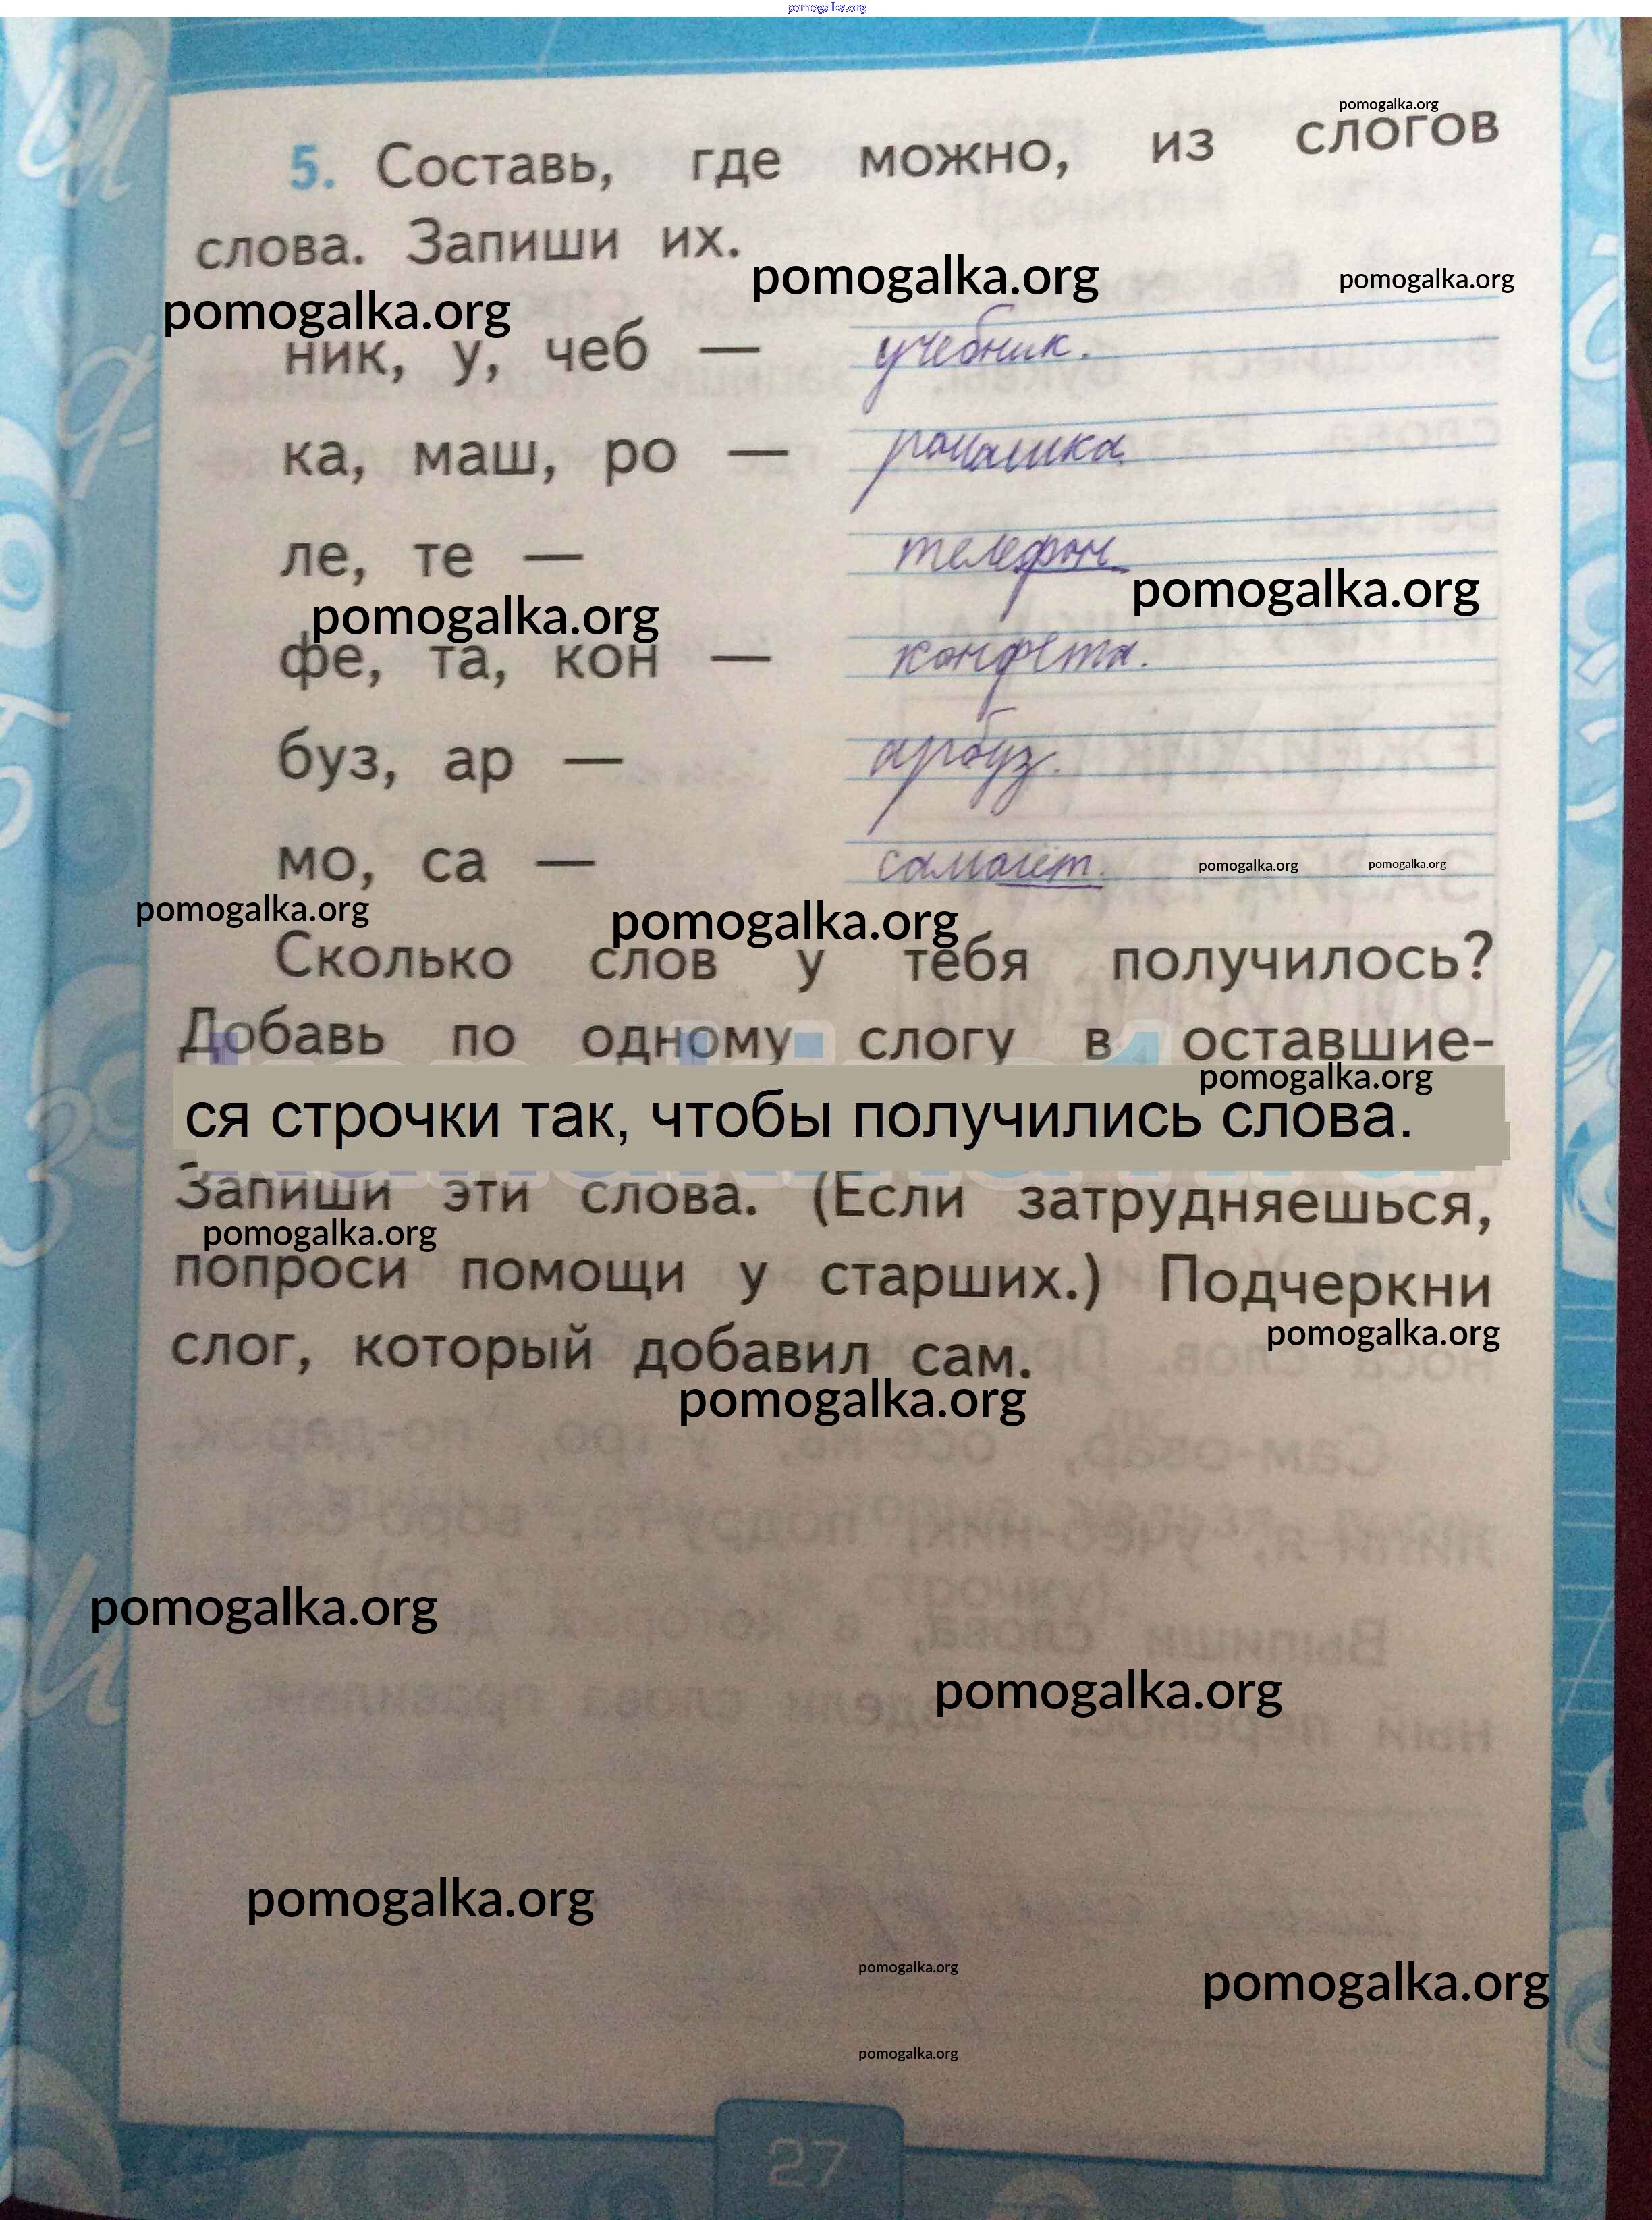 pomogalka.org
pomogalka.org
5. Составь, где можно, из слогов
слова. Запиши их.
pomogalka.org pomogalka.org
pomogalka.org
ник, у, чеб — учебник.
ка, маш, ро — ромашка.
ле, те — телефон.
pomogalka.org
pomogalka.org
фе, та, кон — конфета.
буз, ар — арбуз.
мо, са — самолёт. pomogalka.org pomogalka.org
pomogalka.org pomogalka.org
Сколько слов у тебя получилось?
Добавь по одному слогу в оставшие-
pomogalka.org
ся строчки так, чтобы получились слова.
Запиши эти слова. (Если затрудняешься,
pomogalka.org
попроси помощи у старших.) Подчеркни
pomogalka.org
слог, который добавил сам.
pomogalka.org
pomogalka.org
pomogalka.org
pomogalka.org
pomogalka.org
pomogalka.org
pomogalka.org
27